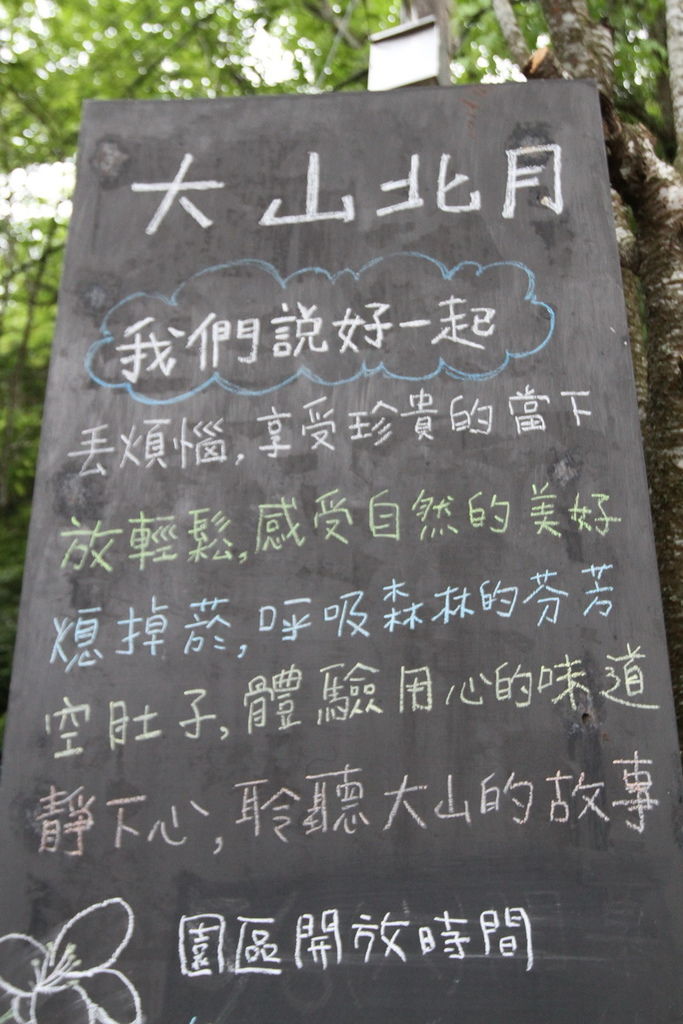 大山北月
我們說好一起
丟煩惱,享受珍貴的當下
放輕鬆,感受自然的美好
熄掉菸,呼吸森林的芬芳
空肚子,體驗用心的味道
靜下心,聆聽大山的故事
園區開放時間